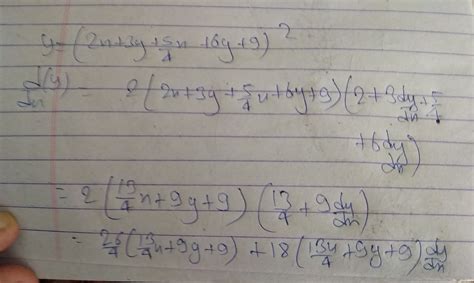 y = (2x+3y+5/4x+6y+9)²
d(y)/dx = 2(2x+3y+5/4x+6y+9)(2+3dy/dx+5/4
+6dy/dx)
= 2(13/4x+9y+9)(13/4+9dy/dx)
= 26/4(13/4x+9y+9)+18(13x/4+9y+9)dy/dx